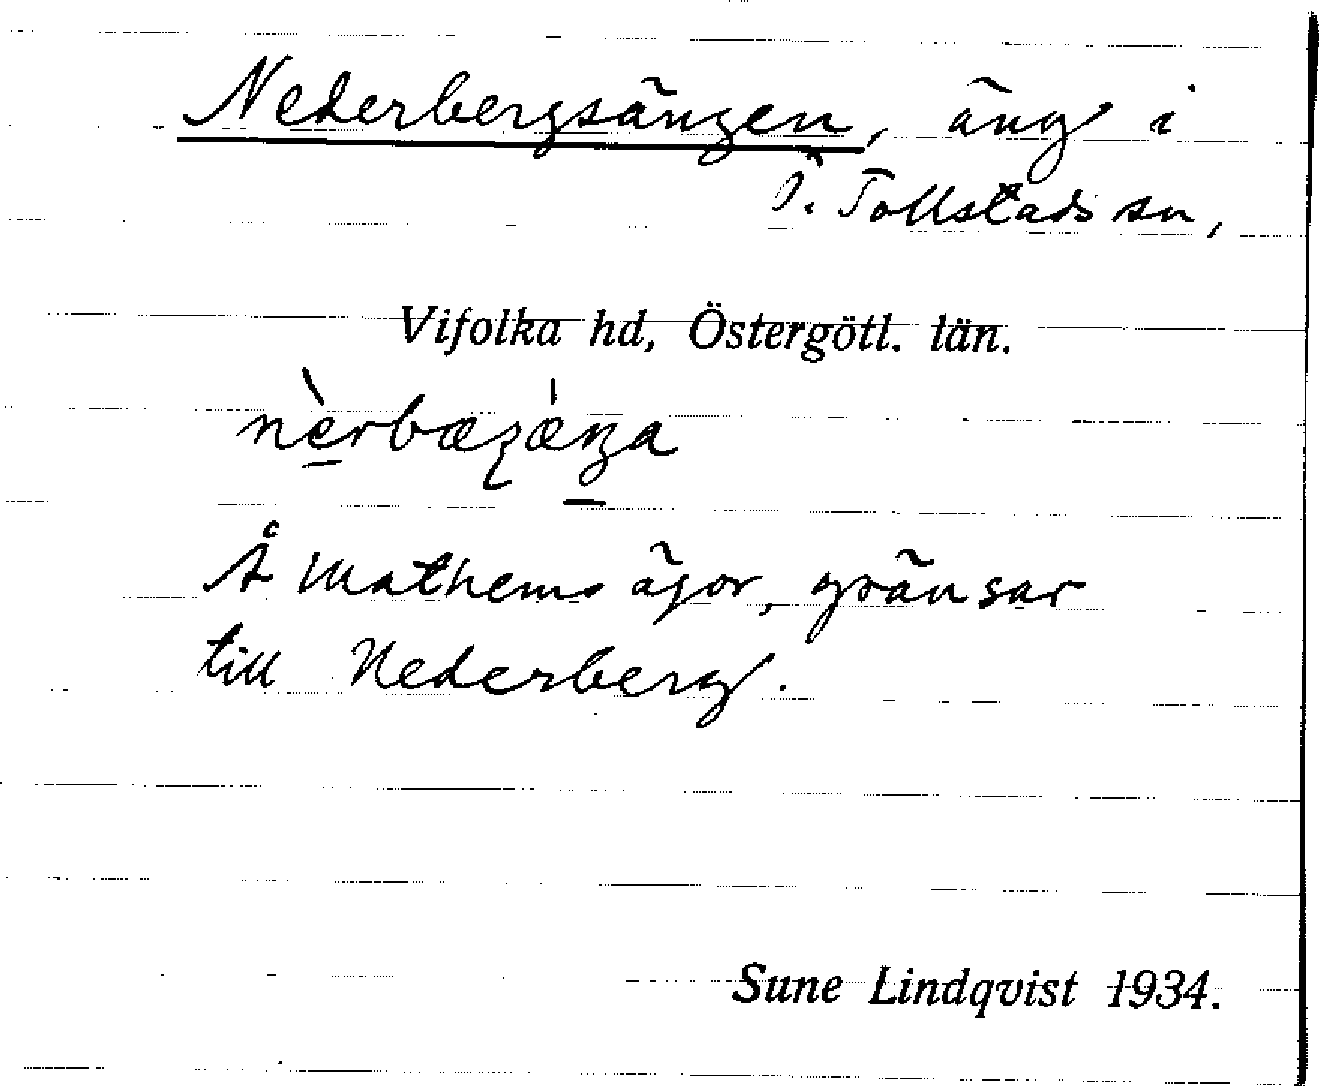 Nederbergsängen, äng i
Ö. Tollstads sn,
Vifolka hd, Östergötl. län.
Å Mathems ägor, gränsar
till Nederberg.
Sune Lindqvist 1934.